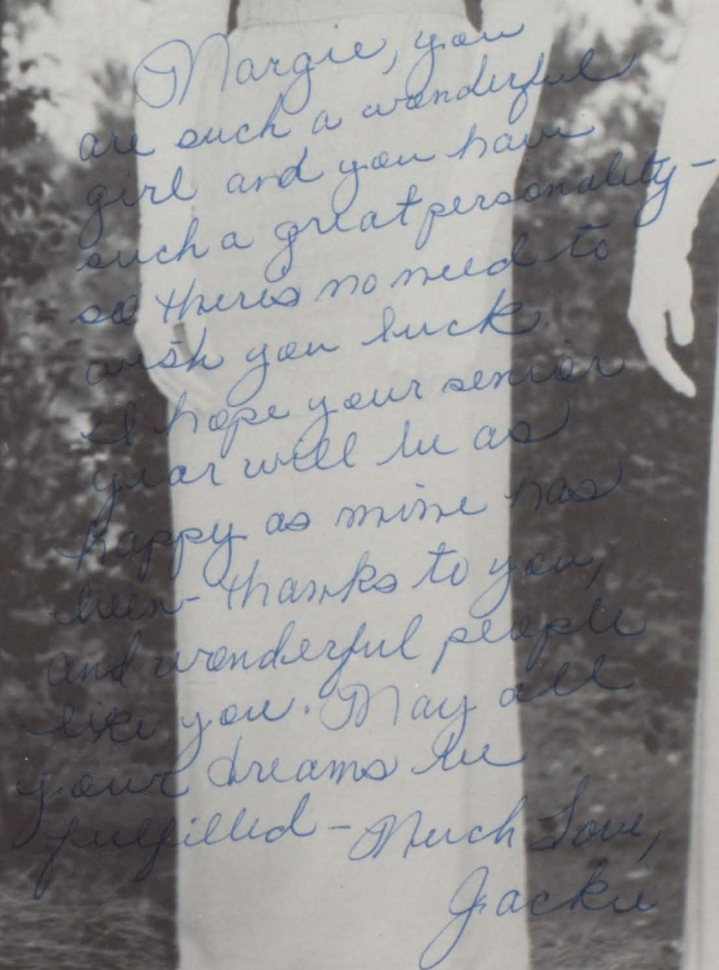 Margie, you
are such a wonderful
girl and you have
such a great personality -
so there's no need to
wish you luck.
I hope your senior
year will be as
happy as mine has
been - thanks to you,
and wonderful people
like you. May all
your dreams be
fulfilled - Much Love,
Jackie